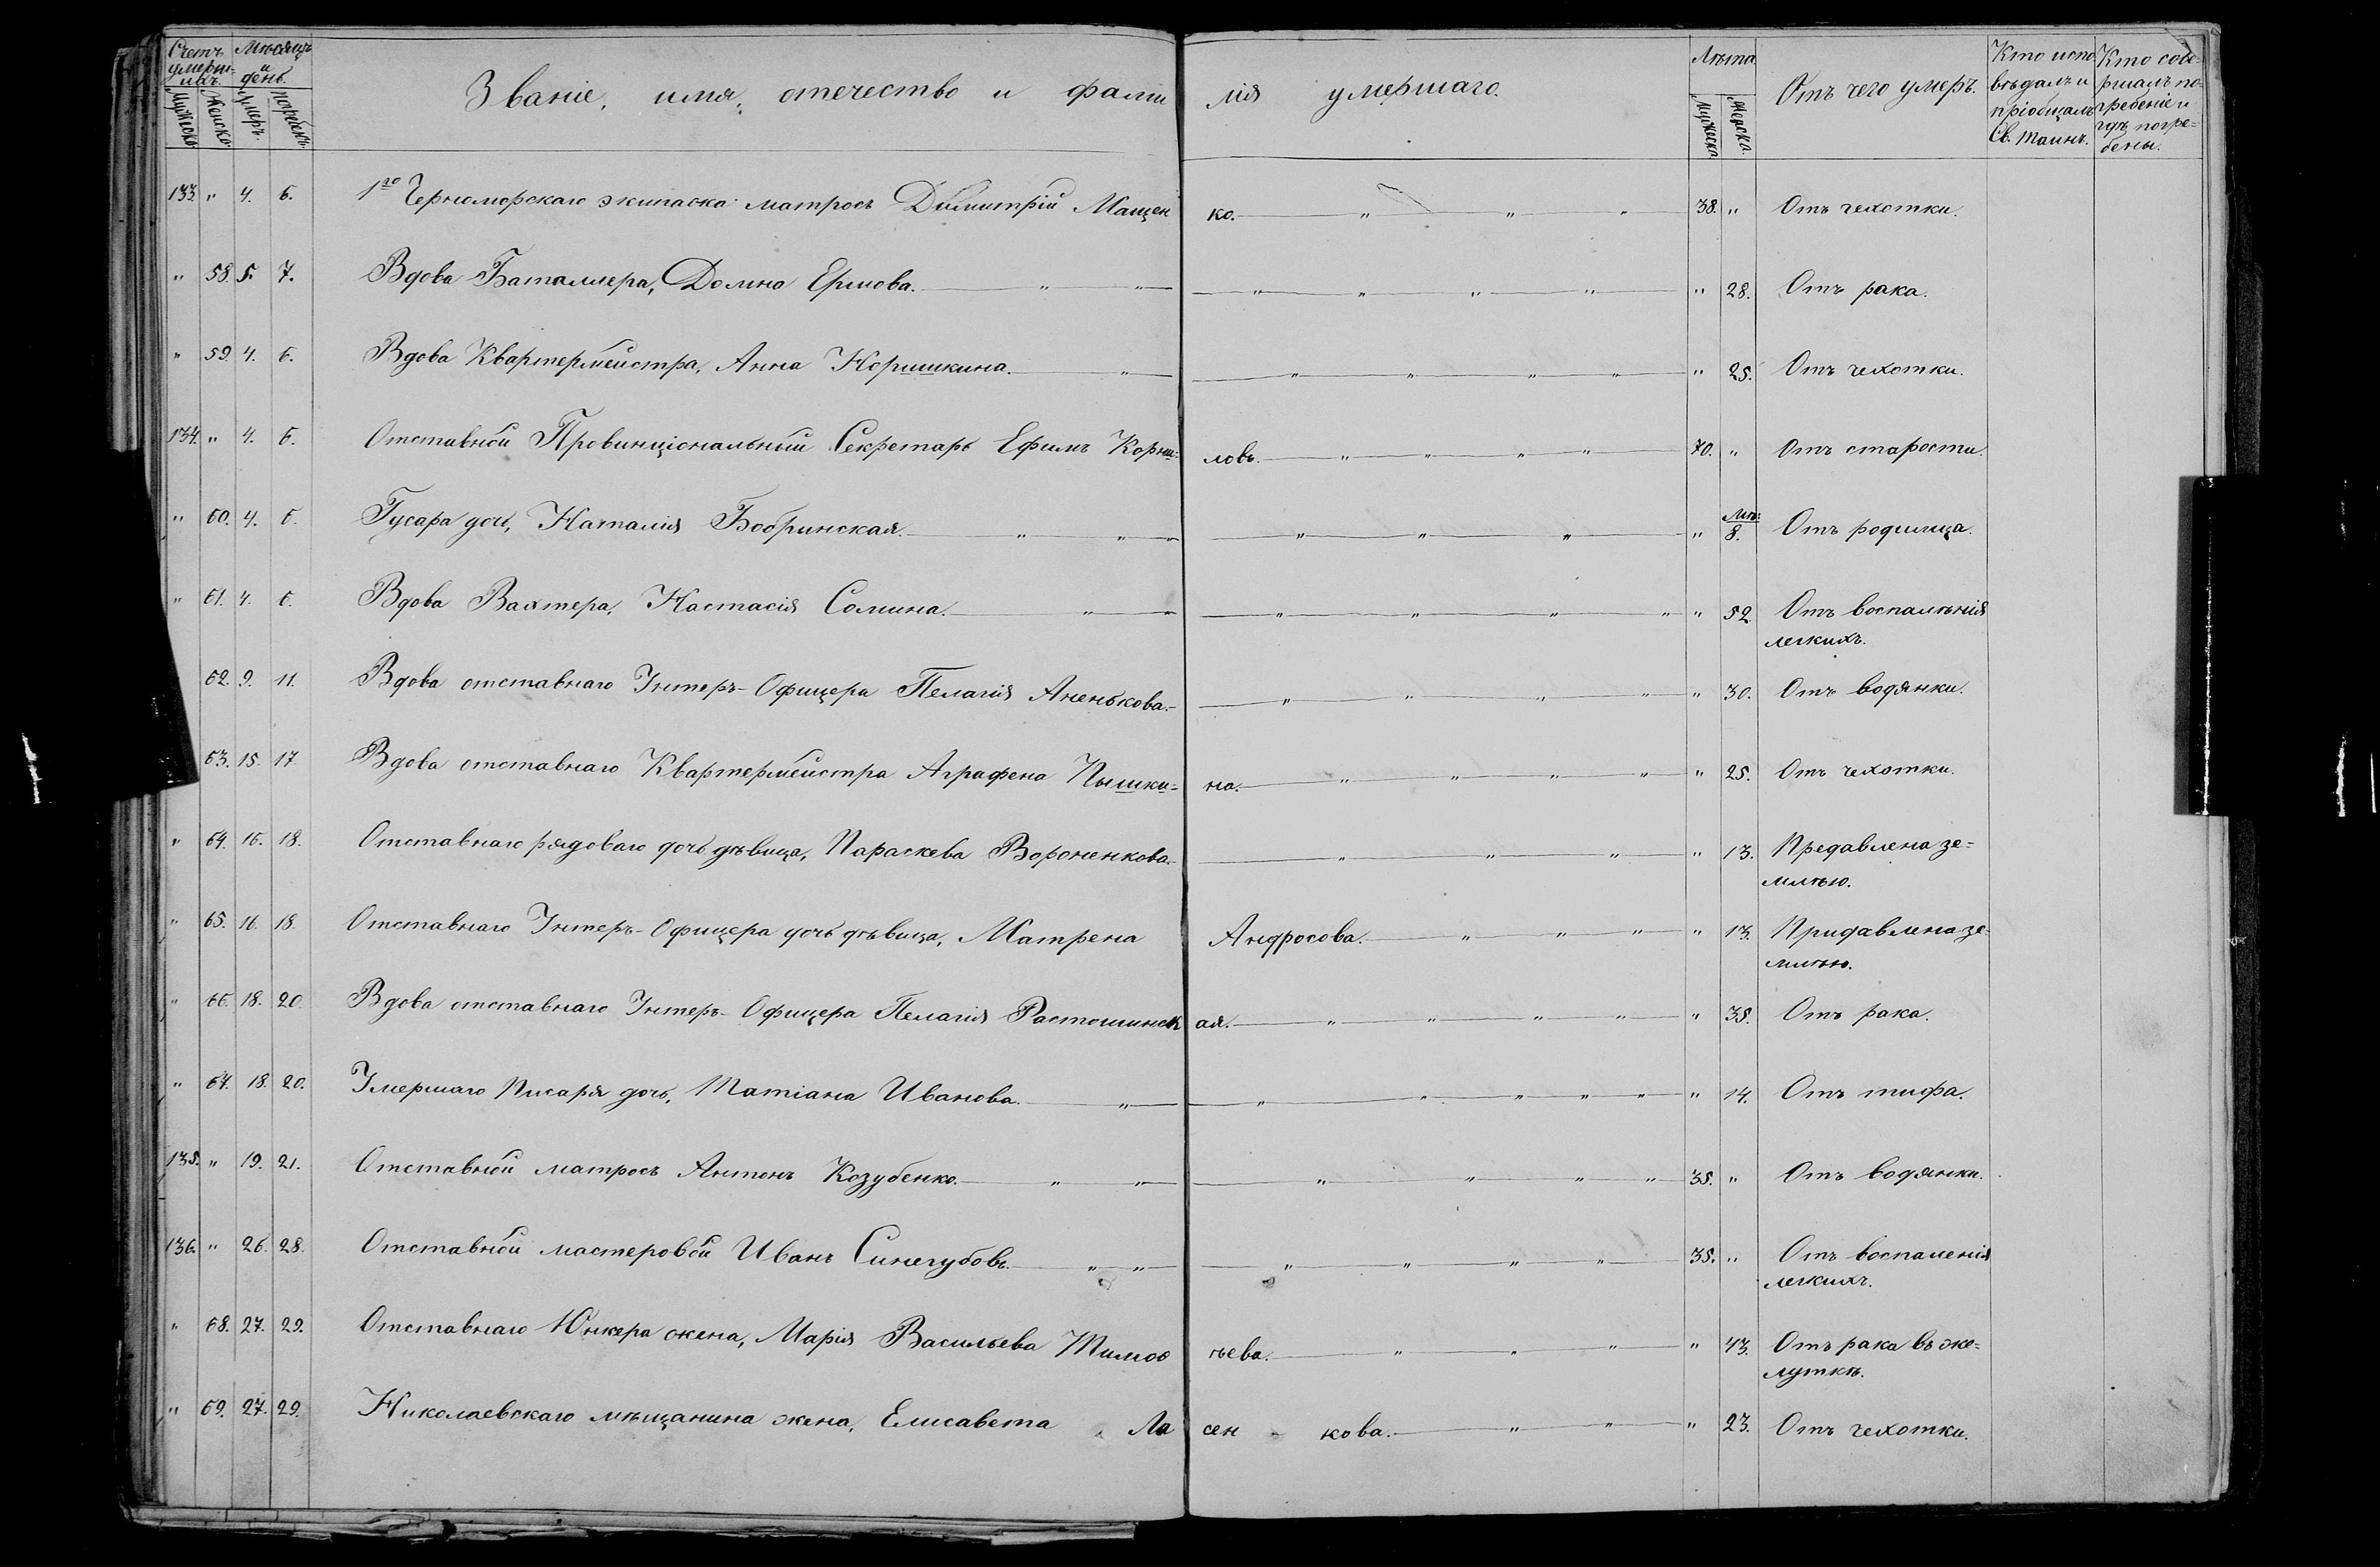 Счетъ умерши- Мѣсяцъ и Званіе, имя, отечество и фамилія умершаго. Лѣта Отъ чего умеръ. Кто испо- Кто сове-
ихъ. день. вѣдалъ и ршалъ по-
Мужеска Женска Умеръ. погребенъ. Мужеска Женска. пріобщалъ гребеніе и
Св. Таинъ. гдѣ погре-
бены.
133. " 4. 6. 1го Черноморскаго экипажа матросъ Димитрій Мащенко. " " " 38. " Отъ чехотки.
" 58. 5. 7. Вдова Баталлера, Домна Ершова. " " " " " " " 28. Отъ рака.
" 59. 4. 6. Вдова Квартермейстра, Анна Норишкина. " " " " " " 25. Отъ чехотки.
134. " 4. 6. Отставной Провинціональный Секретарь Ефимъ Корни=ловъ. " " " " 70. " Отъ старости.
" 60. 4. 6. Гусара дочь, Наталія Бобринская. " " " " " " " Мѣ: 8. Отъ родимца.
" 61. 4. 6. Вдова Вахтера, Настасія Сомина. " " " " " " " 52. Отъ воспалѣнія
легкихъ.
62. 9. 11. Вдова отставнаго Унтеръ-Офицера Пелагія Аненькова. " " " " " 30. Отъ водянки.
63. 15. 17. Вдова отставнаго Квартермейстра Аграфена Пышки=на. " " " " " 25. Отъ чехотки.
" 64. 16. 18. Отставнаго рядоваго дочь дѣвица, Параскева Вороненкова. " " " " 13. Предавлена зе=
млѣю.
" 65. 16. 18. Отставнаго Унтеръ-Офицера дочь дѣвица, Матрена Андросова. " " " " 13. Придавлена зе-
млѣю.
" 66. 18. 20. Вдова отставнаго Унтеръ-Офицера Пелагія Растошинская. " " " " " 35. Отъ рака.
" 67. 18. 20. Умершаго Писаря дочь, Татіана Иванова. " " " " " " " 14. Отъ тифа.
135. " 19. 21. Отставной матросъ Антонъ Козубенко. " " " " " " 35. " Отъ водянки.
136. " 26. 28. Отставной мастеровой Иванъ Синегубовъ. " " " " " " 35. " Отъ воспаленія
легкихъ.
" 68. 27. 29. Отставнаго Юнкера жена, Марія Васильева Тимоѳѣева. " " " " 43. Отъ рака въ же=
луткѣ.
" 69. 27. 29. Николаевскаго мѣщанина жена, Елисавета Ласенкова. " " " 23. Отъ чехотки.